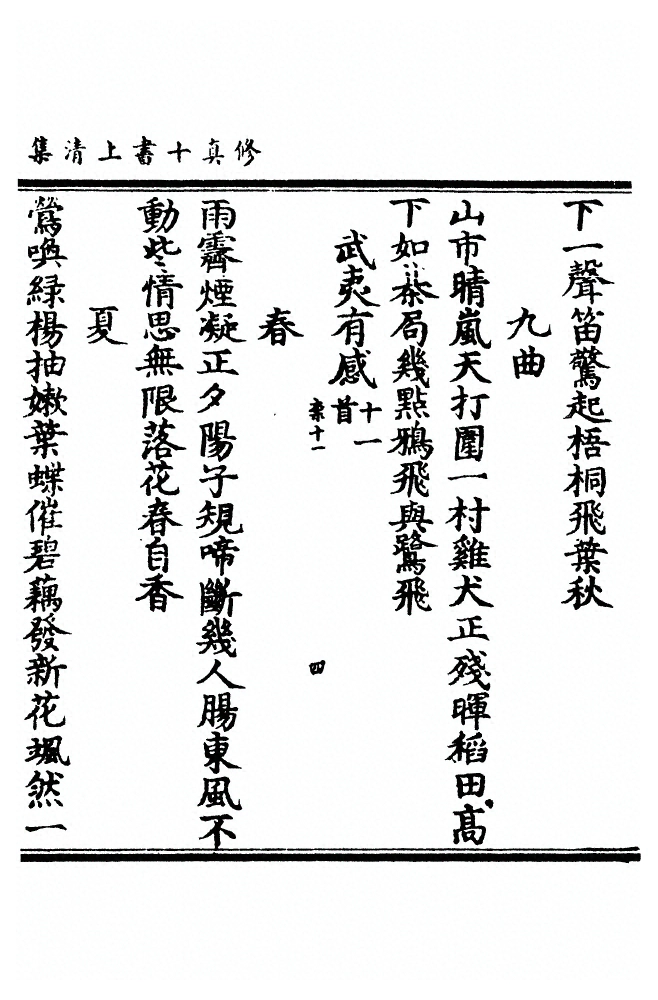 修真十書上清集
下一聲笛驚起梧桐飛葉秋
九曲
山市晴嵐天打圍一村雞犬正殘暉稻田高
下如棊局幾點鴉飛與鷺飛
武夷有感十一首
柰十一
四
春
雨霽煙凝正夕陽子規啼斷幾人腸東風不
動些情思無限落花春自香
夏
鶯喚綠楊抽嫩葉蝶催碧藕發新花颯然一